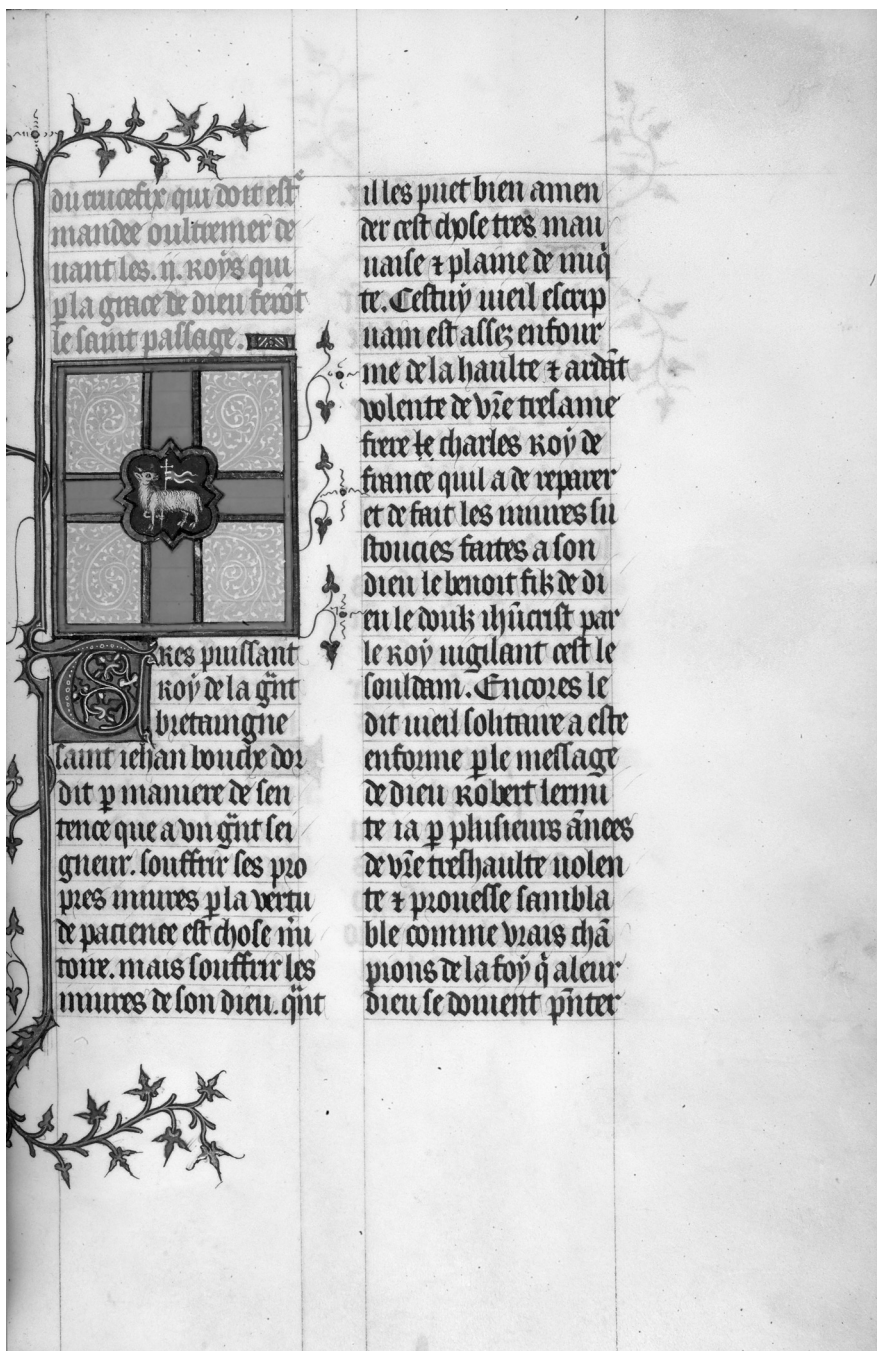 du crucefix qui doit estᵉ
mandee oultremer de
uant les .ii. Roys qui
ꝑ la grace de dieu ferōt
le saint passage.
Tres puissant
Roy de la gᵃnt
bretaingne
saint iehan bouche dor
dit ꝑ maniere de sen
tence que a vn gᵃnt sei
gneur. souffrir ses pro
pres iniures ꝑ la vertu
de pacience est chose m̄i
toire. mais souffrir les
iniures de son dieu. qᵃnt
il les puet bien amen
der cest chose tres mau
uaise ⁊ plaine de iniq̄
te. Cestuy uieil escrip
uain est assez enfour
me de la haulte ⁊ ardāt
volente de vr̄e tresame
frere le charles Roy de
france quil a de reparer
et de fait les iniures su
stoucies faites a son
dieu le benoit filz de di
eu le doulz ihūcrist par
le Roy uigilant cest le
souldain. Encores le
dit uieil solitaire a este
enforme ꝑ le message
de dieu Robert lermi
te ia ꝑ plusieurs ānees
de vr̄e treshaulte uolen
te ⁊ prouesse sambla
ble comme vrais chā
pions de la foy q̄ a leur
dieu se doiuent pn̄ter